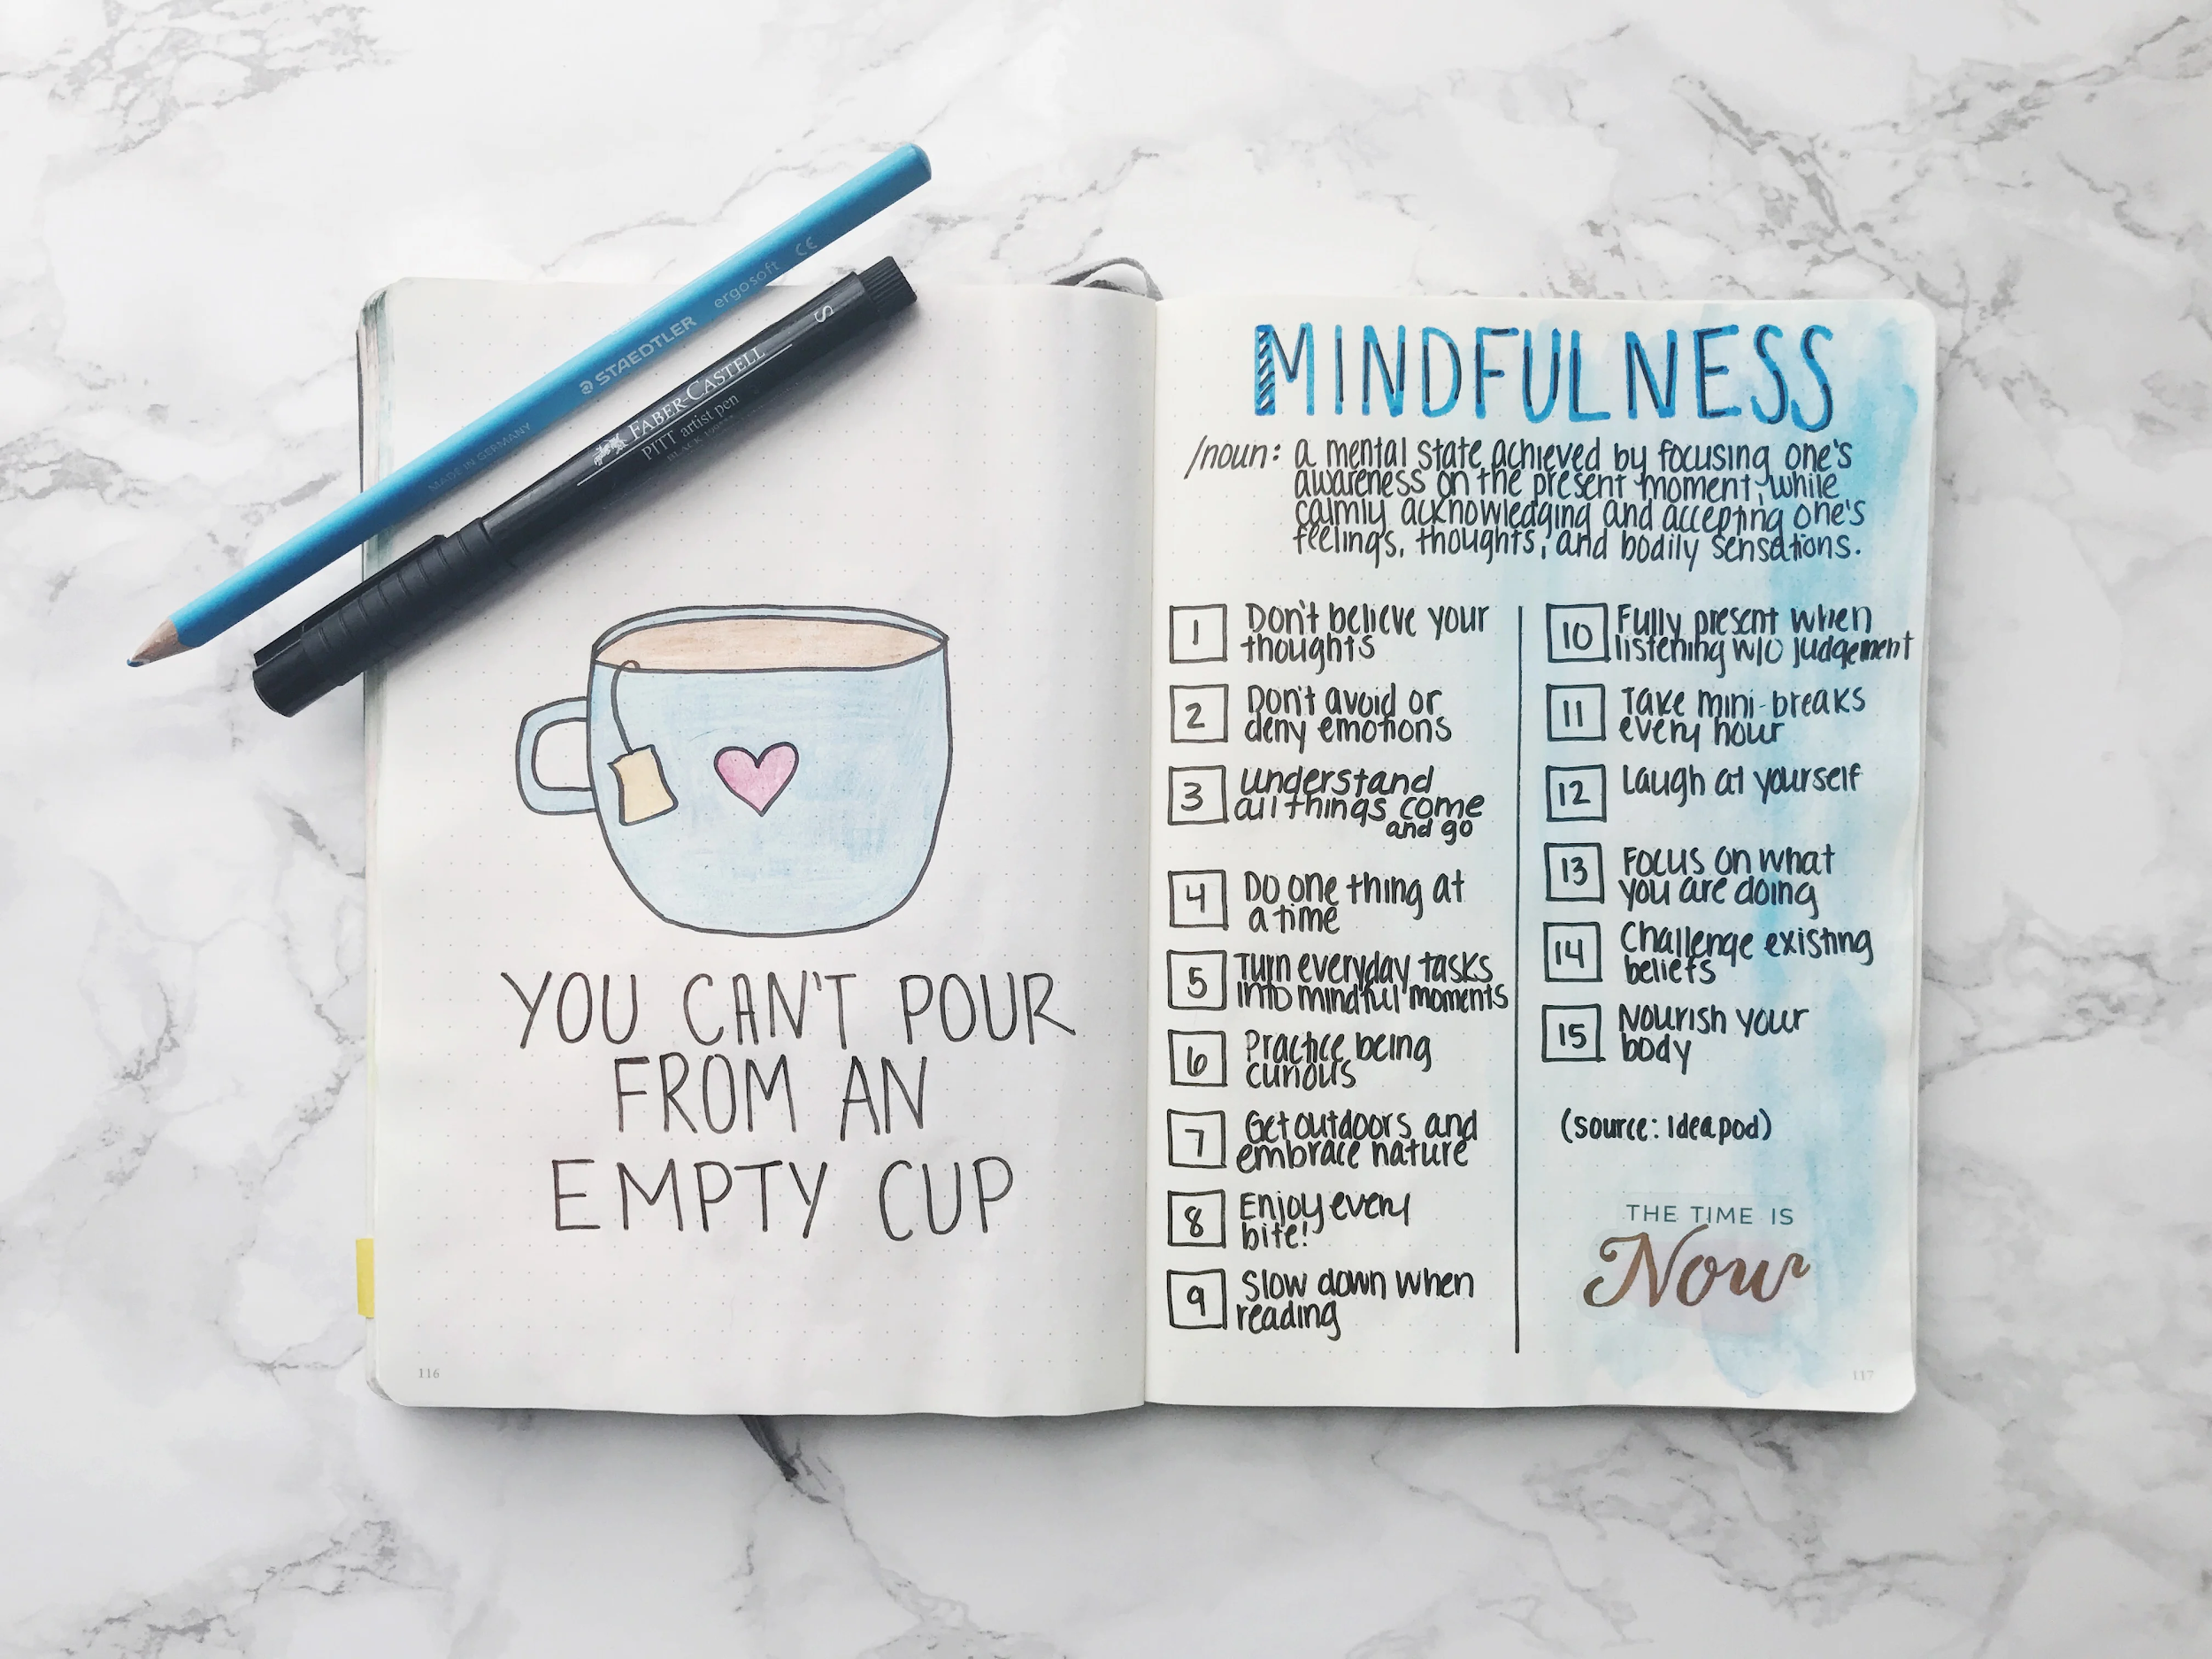 STAEDTLER ergosoft CE
MADE IN GERMANY
FABER-CASTELL
PITT artist pen
S
YOU CAN'T POUR
FROM AN
EMPTY CUP
116
MINDFULNESS
/noun: a mental state achieved by focusing one's
awareness on the present moment, while
calmly acknowledging and accepting one's
feelings, thoughts, and bodily sensations.
1 Don't believe your
thoughts
2 Don't avoid or
deny emotions
3 understand
all things come
and go
4 Do one thing at
a time
5 Turn everyday tasks
into mindful moments
6 Practice being
curious
7 Get outdoors and
embrace nature
8 Enjoy every
bite!
9 Slow down when
reading
10 Fully present when
listening w/o judgement
11 Take mini-breaks
every hour
12 Laugh at yourself
13 Focus on what
you are doing
14 Challenge existing
beliefs
15 Nourish your
body
(source: Ideapod)
THE TIME IS
Now
117